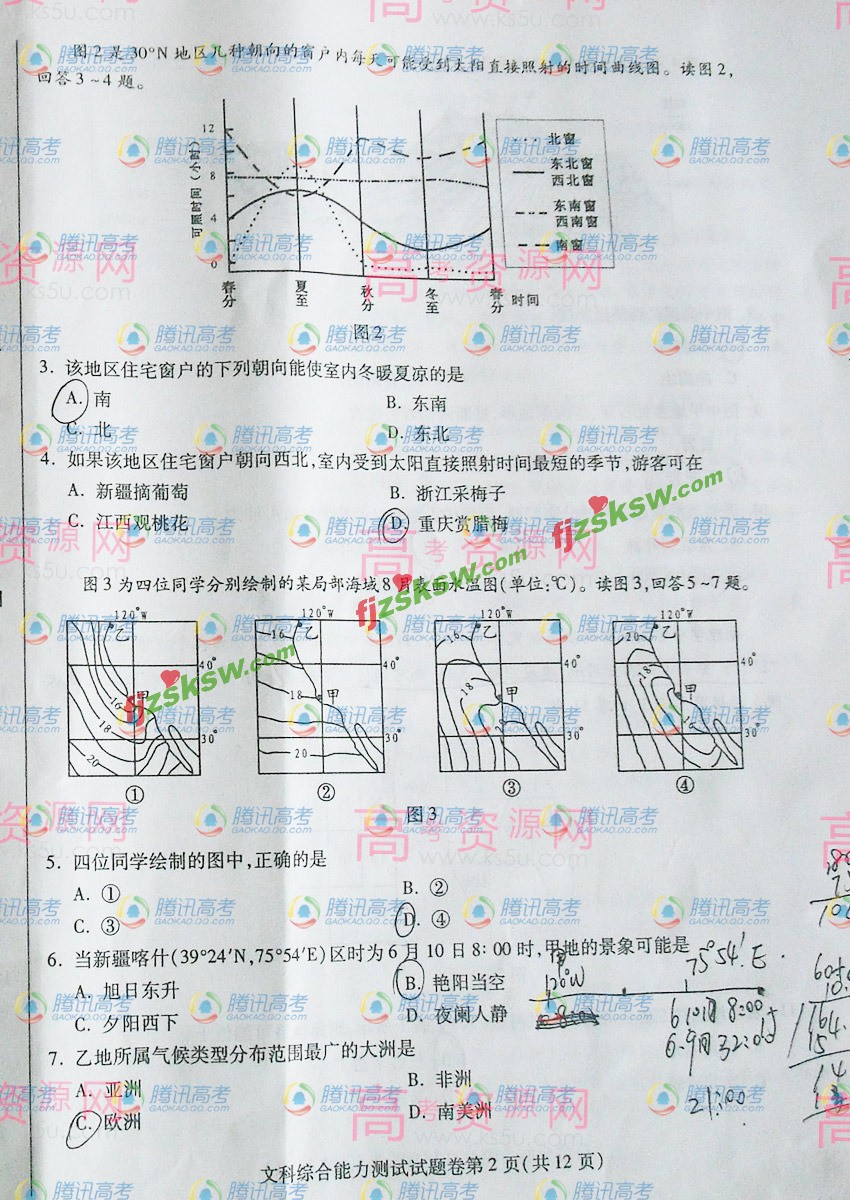 图2是30°N地区几种朝向的窗户内每天可能受到太阳直接照射的时间曲线图。读图2,
回答3~4题。
可照时间(小时)
12
8
4
0
北窗
东北窗
西北窗
东南窗
西南窗
南窗
春分 夏至 秋分 冬至 春分 时间
图2
3. 该地区住宅窗户的下列朝向能使室内冬暖夏凉的是
A. 南 B. 东南
C. 北 D. 东北
4. 如果该地区住宅窗户朝向西北,室内受到太阳直接照射时间最短的季节,游客可在
A. 新疆摘葡萄 B. 浙江采梅子
C. 江西观桃花 D. 重庆赏腊梅
图3为四位同学分别绘制的某局部海域8月表面水温图(单位:℃)。读图3,回答5~7题。
120°W 120°W 120°W 120°W
乙 16 乙 16 乙 20 乙
40° 40° 40° 40°
16 甲 18 甲 18 甲 18 甲 16
18
30° 30° 30° 30°
20 20
① ② ③ ④
图3
5. 四位同学绘制的图中,正确的是
A. ① B. ②
C. ③ D. ④
6. 当新疆喀什(39°24′N,75°54′E)区时为6月10日8:00时,甲地的景象可能是
A. 旭日东升 B. 艳阳当空
C. 夕阳西下 D. 夜阑人静
甲
120°W
75°54′E
6月10日 8:00
6.9日 32:00
21:00
7. 乙地所属气候类型分布范围最广的大洲是
A. 亚洲 B. 非洲
C. 欧洲 D. 南美洲
文科综合能力测试试题卷第2页(共12页)
腾讯高考
GAOKAO.QQ.COM
高考资源网
www.ks5u.com
fjzsksw.com